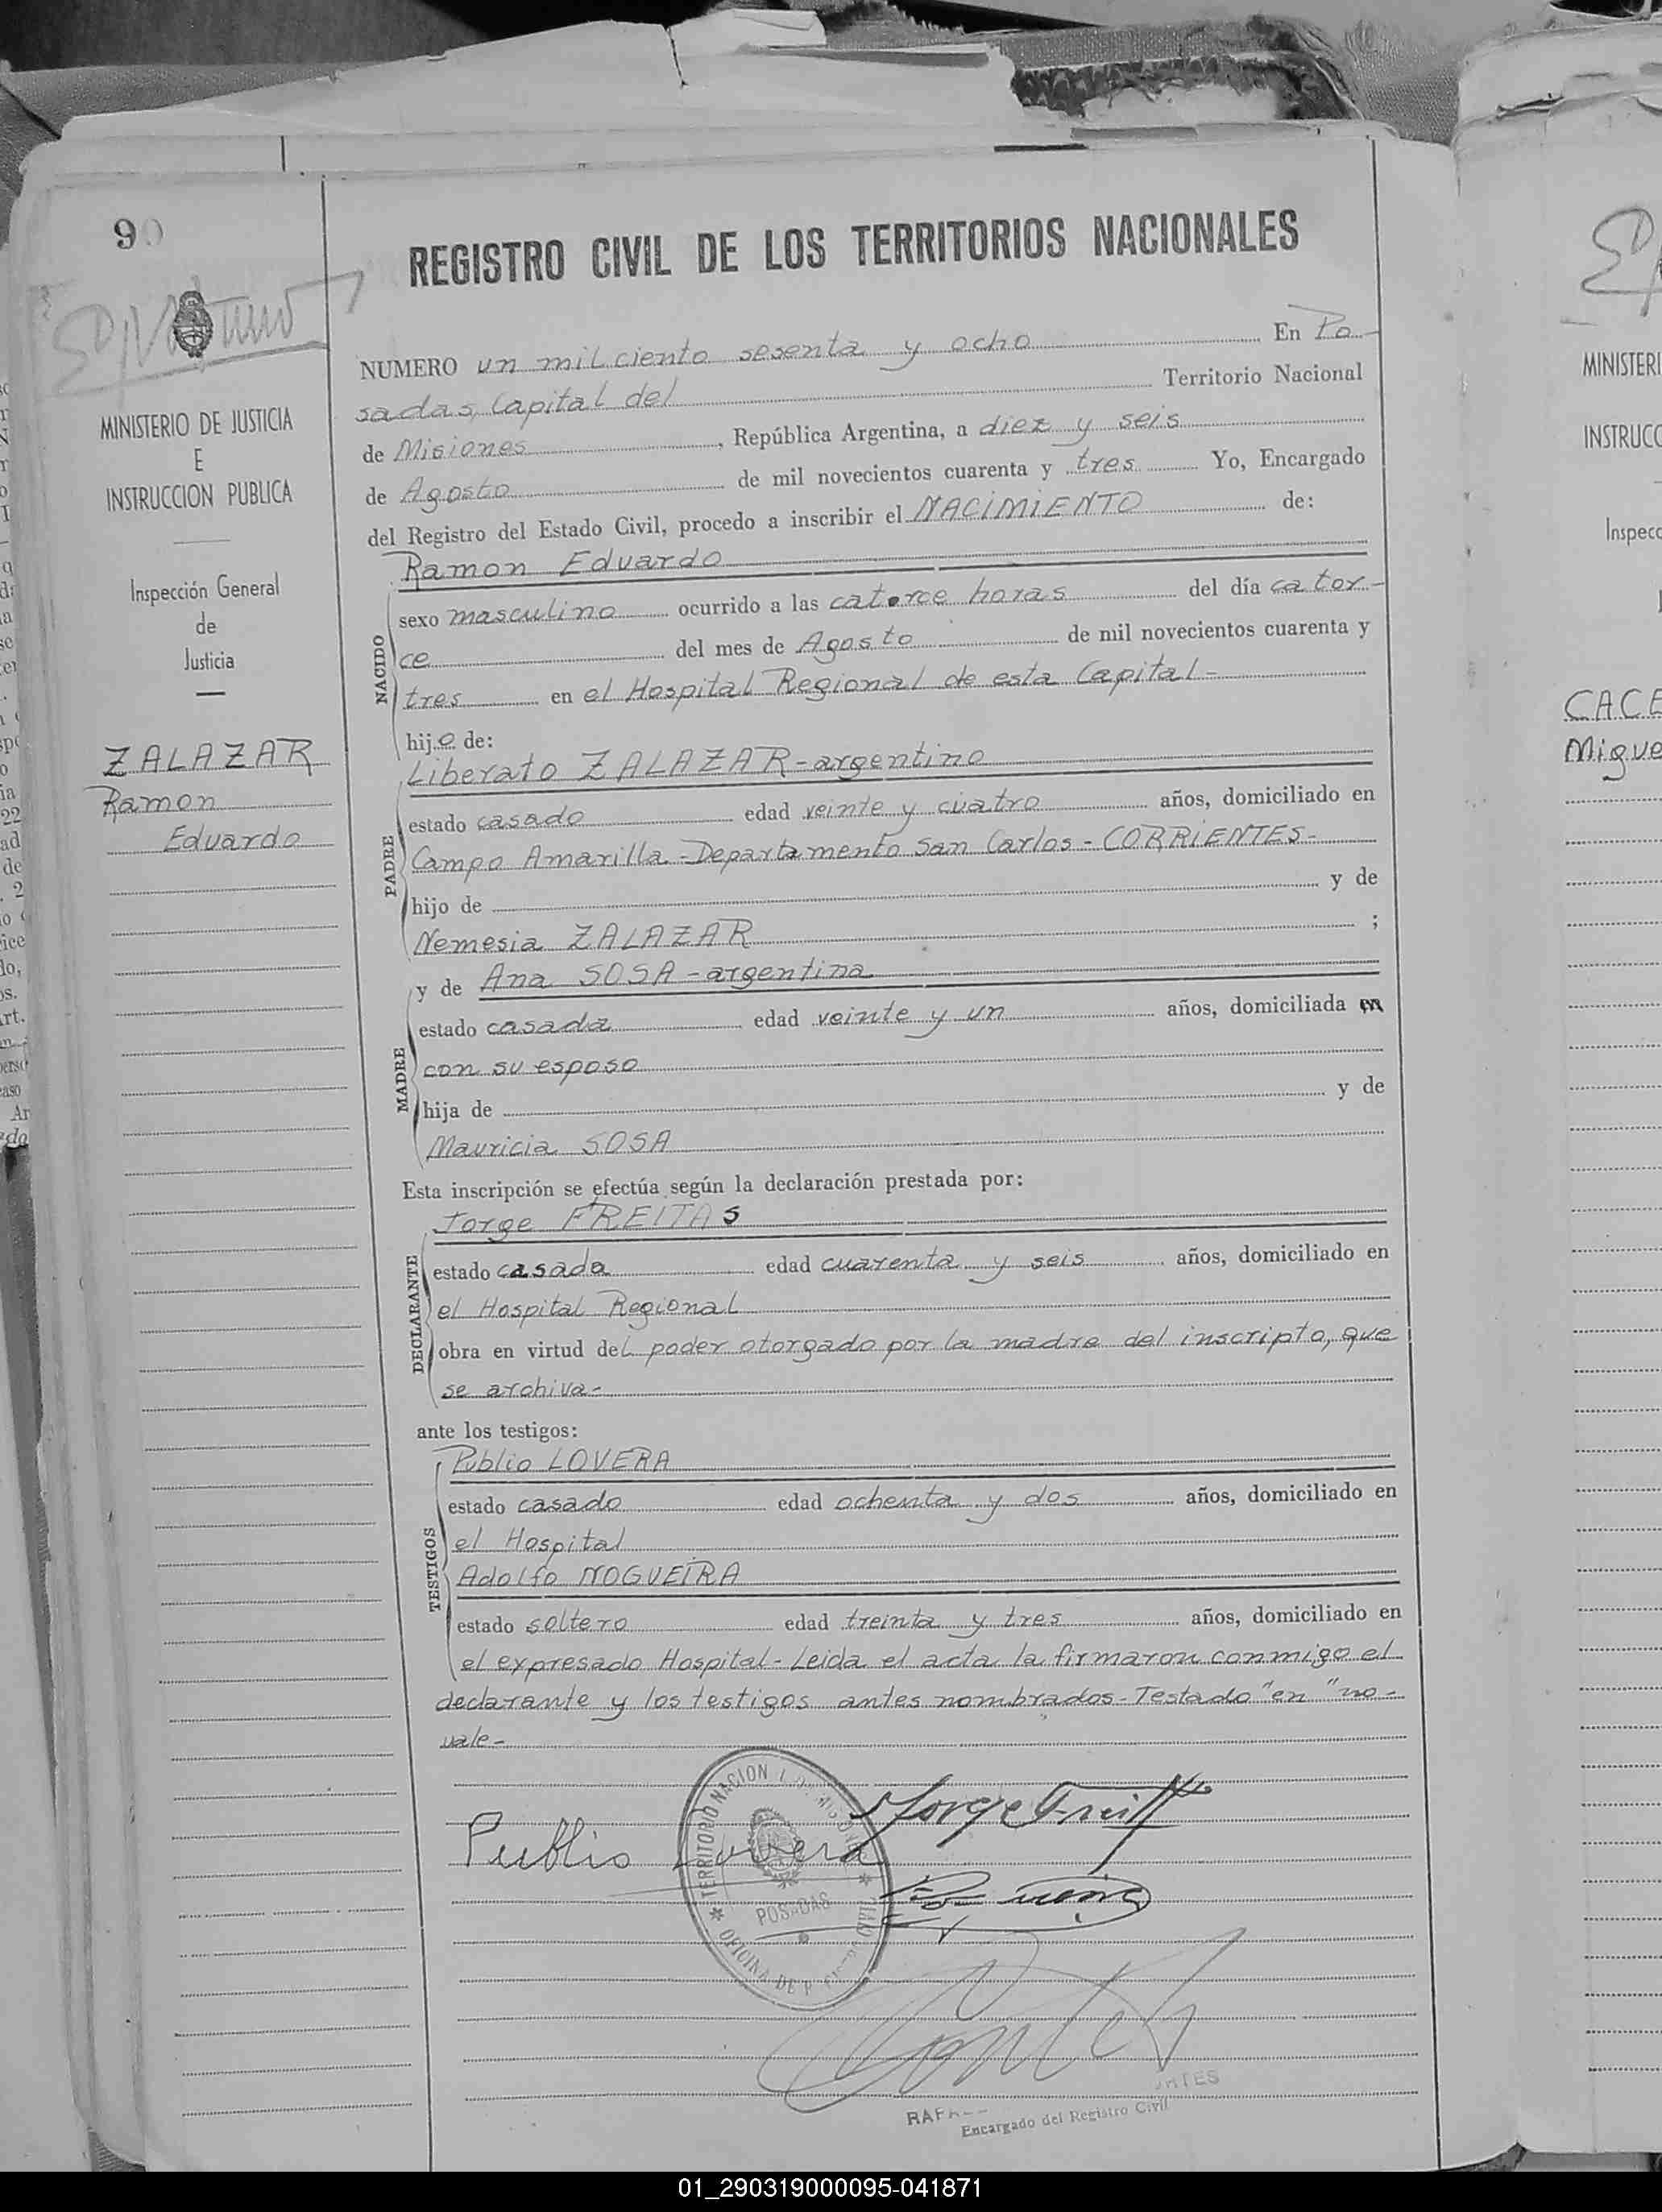 90
REGISTRO CIVIL DE LOS TERRITORIOS NACIONALES
MINISTERIO DE JUSTICIA
E
INSTRUCCION PUBLICA
Inspección General
de
Justicia
ZALAZAR
Ramon
Eduardo
NUMERO un mil ciento sesenta y ocho En Po-
sadas, Capital del Territorio Nacional
de Misiones, República Argentina, a diez y seis
de Agosto de mil novecientos cuarenta y tres Yo, Encargado
del Registro del Estado Civil, procedo a inscribir el NACIMIENTO de:
Ramon Eduardo
NACIDO
sexo masculino ocurrido a las catorce horas del día cator-
ce del mes de Agosto de mil novecientos cuarenta y
tres en el Hospital Regional de esta Capital-
hijo de:
Liberato ZALAZAR-argentino
PADRE
estado casado edad veinte y cuatro años, domiciliado en
Campo Amarilla.-Departamento San Carlos-CORRIENTES-
hijo de y de
Nemesia ZALAZAR ;
y de Ana SOSA-argentina
MADRE
estado casada edad veinte y un años, domiciliada en
con su esposo
hija de y de
Mauricia SOSA
Esta inscripción se efectúa según la declaración prestada por:
Jorge FREITAS
DECLARANTE
estado casado edad cuarenta y seis años, domiciliado en
el Hospital Regional
obra en virtud del poder otorgado por la madre del inscripto, que
se archiva-
ante los testigos:
Publio LOVERA
TESTIGOS
estado casado edad ochenta y dos años, domiciliado en
el Hospital
Adolfo NOGUEIRA
estado soltero edad treinta y tres años, domiciliado en
el expresado Hospital-Leida el acta la firmaron conmigo el
declarante y los testigos antes nombrados-Testado "en" no-
vale-
TERRITORIO NACION
POSADAS
OFICINA DE
Publio Lovera
Jorge Freitas
RAFA
Encargado del Registro Civil
MINISTERI
INSTRUCC
Inspecc
CACE
Migue
01_290319000095-041871